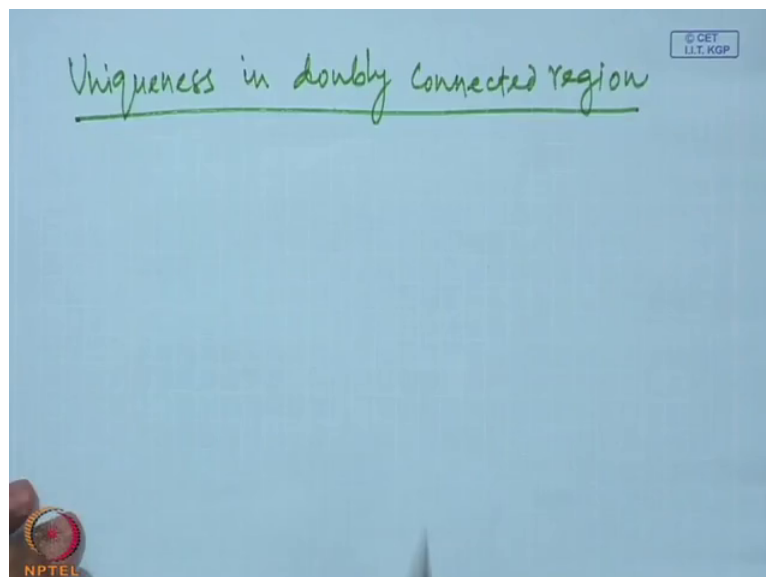 © CET
I.I.T. KGP
Uniqueness in doubly connected region
NPTEL